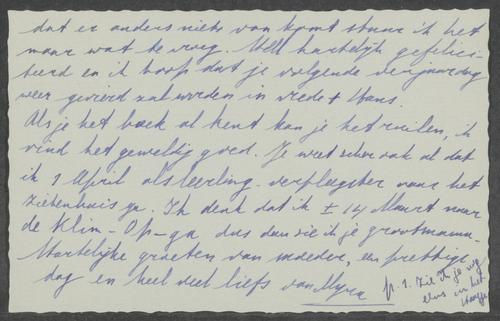 dat er anders niets van komt stuur ik het
maar wat te vroeg. Well hartelijk gefelici-
teerd en ik hoop dat je volgende verjaardag
weer gevierd zal worden in vrede + thans.
Als je het boek al kent kan je het ruilen, ik
vind het geweldig goed. Je weet zeker ook al dat
ik 1 April als leerling-verpleegster naar het
ziekenhuis ga. Ik denk dat ik ± 14 Maart naar
de Klim-Op-ga dus dan zie ik je grootmama.
Hartelijke groeten van moeder, een prettige
dag en heel veel liefs van Myra
p.s. Zie ik je nog
eens in het